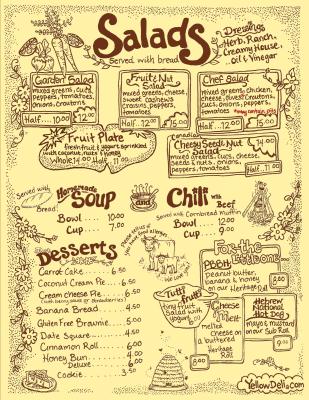 Salads
Served with bread
Dressings
Herb, Ranch,
Creamy House,
Oil & Vinegar
Garden Salad
mixed greens, cukes,
peppers, tomatoes,
onions, croutons
Half... 10.00
12.00
Fruit & Nut
Salad
mixed greens, cheese,
sweet cashews
craisins, peppers,
tomatoes
Half...12.00
15.00
Chef Salad
mixed greens, chicken,
cheese, olives, croutons,
cukes, onions, peppers,
tomatoes
Half...12.00
15.00
Fruit Plate
fresh fruit & yogurt sprinkled
with coconut, nuts & honey
Whole 14.00 Half 11.00
Cheesy Seedy Nut
Salad
14.00
mixed greens, cukes, cheese,
seeds & nuts, onions, peppers,
tomatoes
Half 11.00
Served with
Bread
Homemade
Soup
Bowl .... 10.00
Cup .... 7.00
and
Chili with
Beef
Served with Cornbread Muffin
Bowl .... 12.00
Cup .... 9.00
Desserts
Carrot Cake ... 6.50
Coconut Cream Pie ... 6.50
Cream Cheese Pie ... 6.50
Banana Bread ... 4.50
Gluten Free Brownie ... 5.00
Date Square ... 4.50
Cinnamon Roll ... 6.00
Honey Bun ... 4.00
Deluxe ... 6.00
Cookie ... 3.50
For the
Little One
PB&H
peanut butter,
banana & honey
on our Heritage Roll
8.00
Tutti
Frutti
tiny fruit
salad with
yogurt
Cheese
Melt
melted
cheese on
a buttered
Heritage
Roll
Hebrew
National
Hot Dog
mayo & mustard
on our Sub Roll
9.00
YellowDeli.com